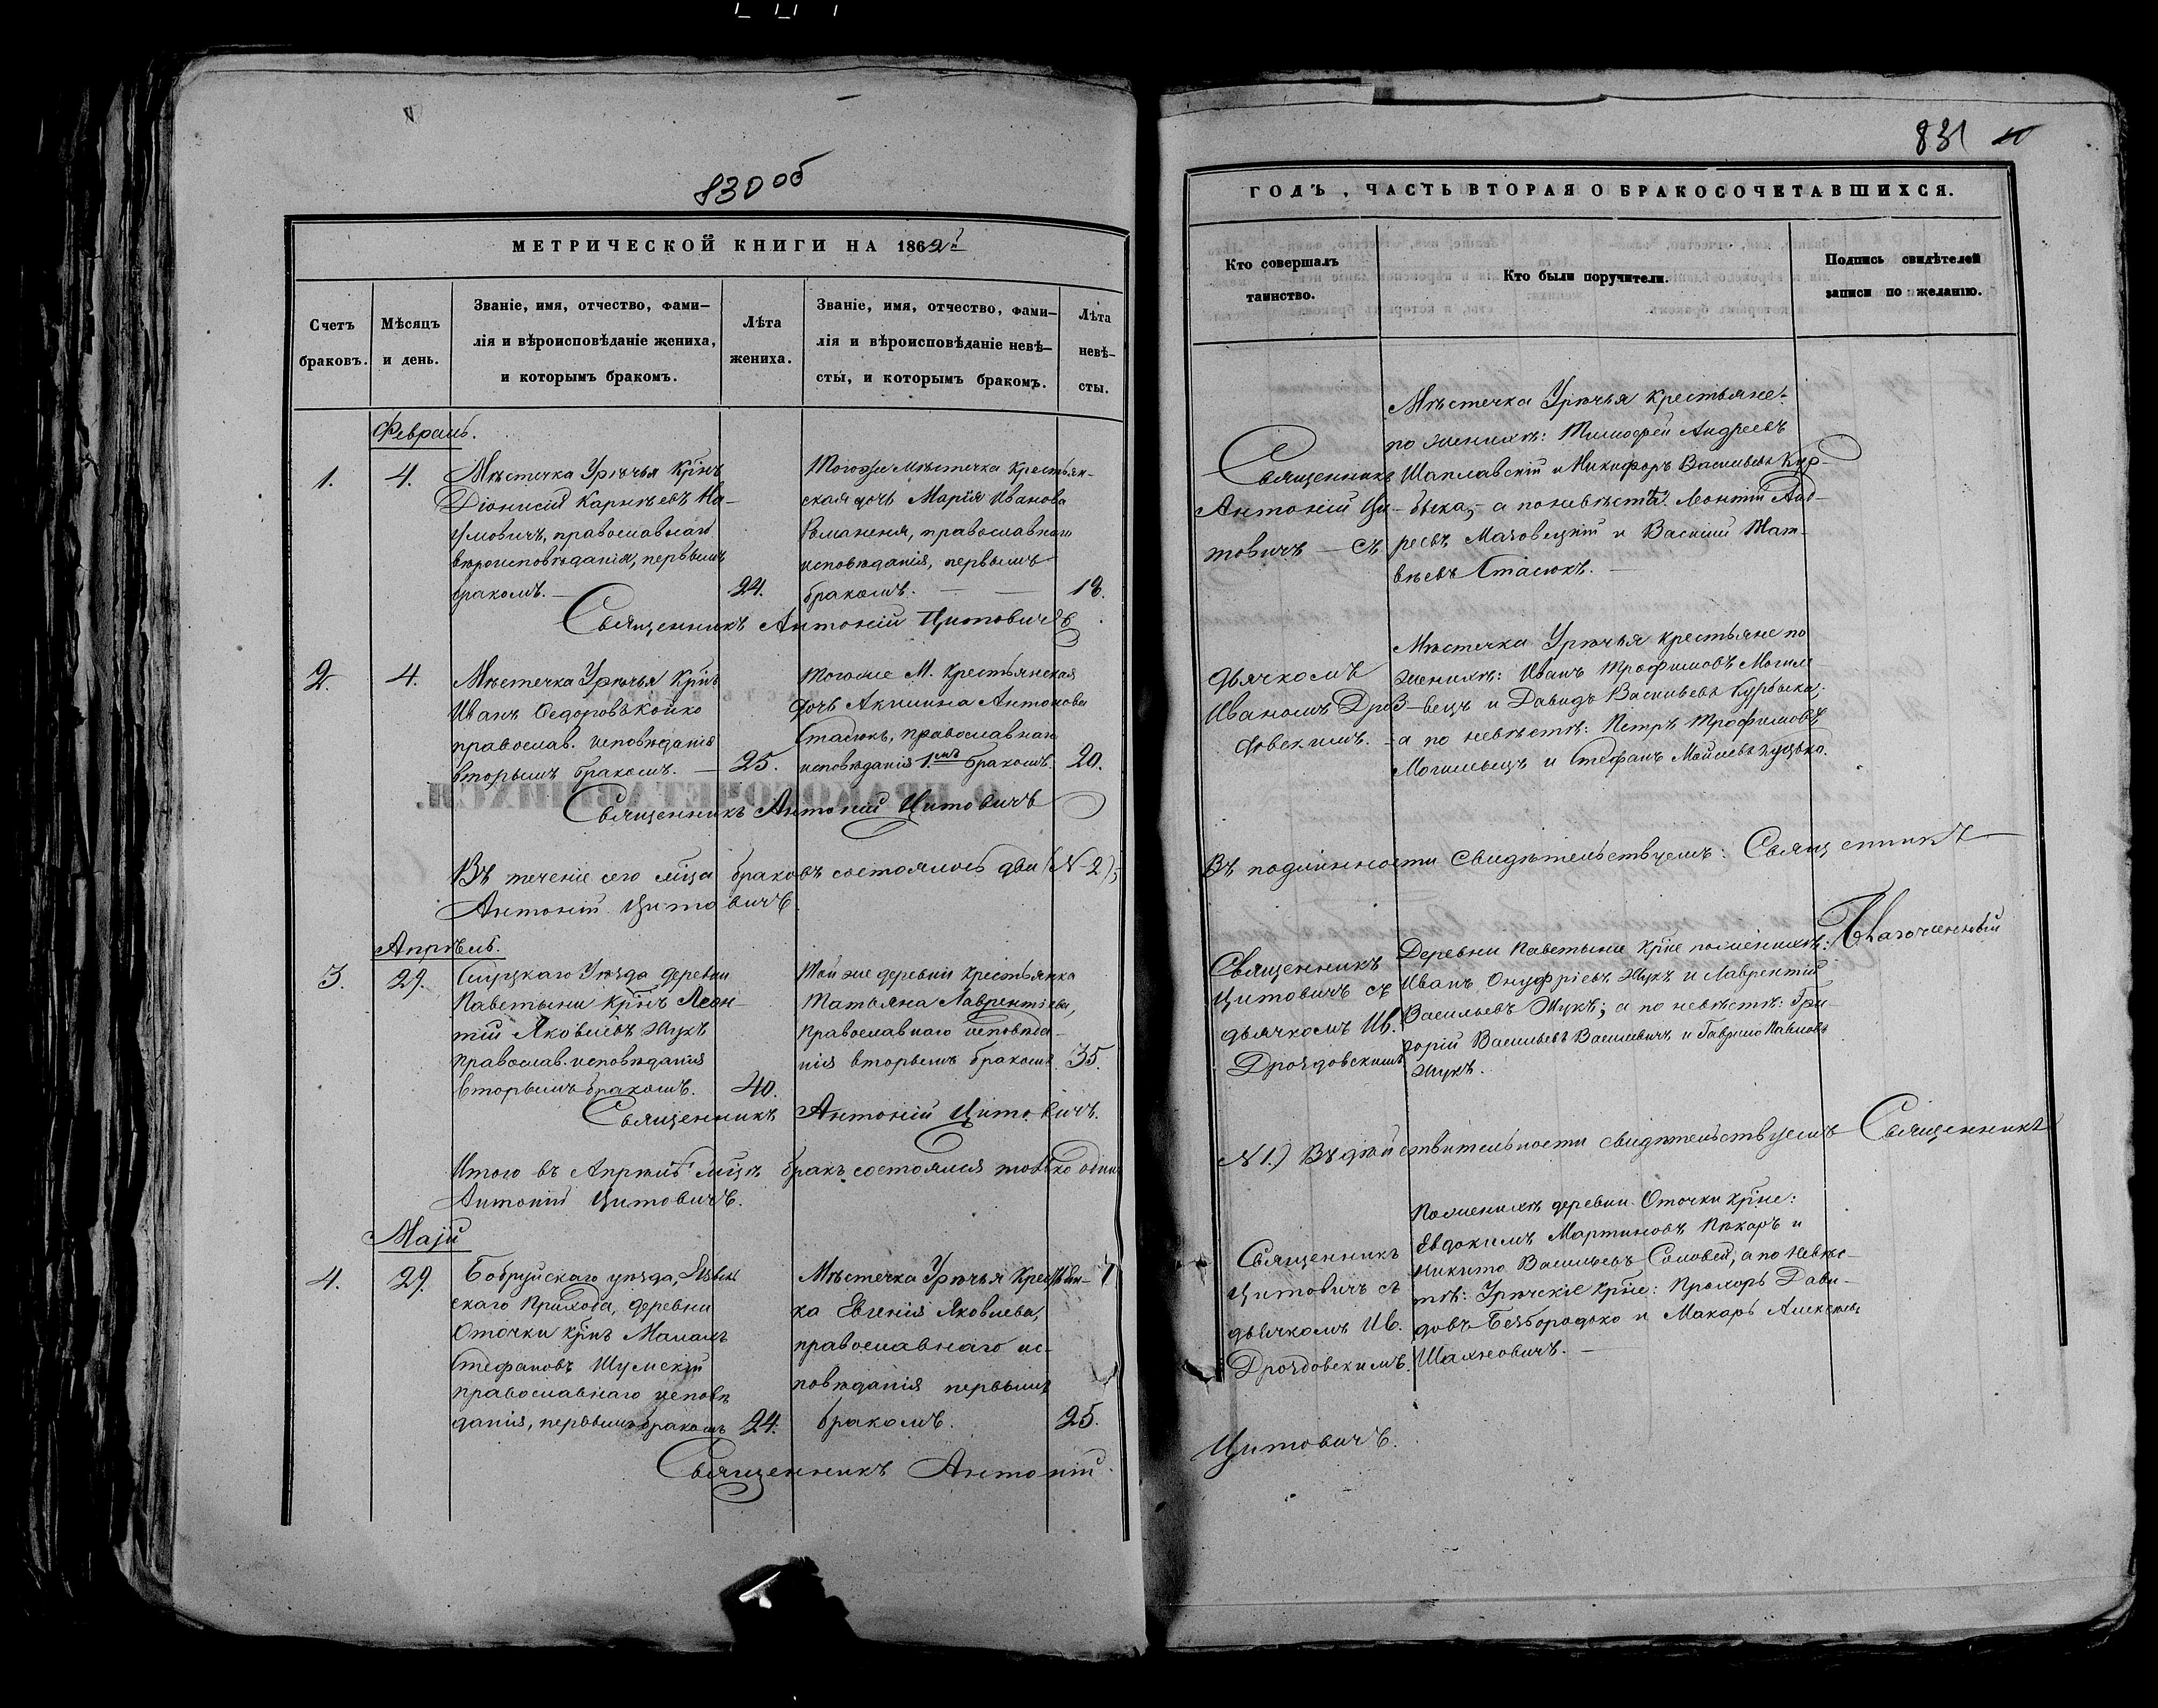 830 об
МЕТРИЧЕСКОЙ КНИГИ НА 1862й
Счетъ
браковъ.
Мѣсяцъ
и день.
Званіе, имя, отчество, фами-
лія и вѣроисповѣданіе жениха,
и которымъ бракомъ.
Лѣта
жениха.
Званіе, имя, отчество, фами-
лія и вѣроисповѣданіе невѣ-
сты, и которымъ бракомъ.
Лѣта
невѣ-
сты.
Февраль.
1.
4.
Мѣстечка Урѣчья Крнъ
Діонисій Карнѣевъ На-
умовичъ, православнаго
вѣроисповѣданія, первымъ
бракомъ.
24.
Тогоже мѣстечка крестьян-
ская дочь Марія Иванова
Романеня, православнаго
исповѣданія, первымъ
бракомъ.
18.
Священникъ Антоній Цитовичъ
2.
4.
Мѣстечка Урѣчья Крнъ
Иванъ Ѳедоровъ Койко
православ. исповѣданія
вторымъ бракомъ.
25.
Тогоже М. Крестьянская
дочь Акилина Антонова
Стасюкъ, православнаго
исповѣданія 1.мъ бракомъ.
20.
Священникъ Антоній Цитовичъ
Въ теченіе сего мѣца браковъ состоялось два (N 2);
Антоній Цитовичъ
Апрѣль.
3.
29.
Слуцкаго Уѣзда деревни
Паветыни Крнъ Леон-
тій Яковлевъ Жукъ
православ. исповѣданія
вторымъ бракомъ.
40.
Той же деревни Крестьянка
Татьяна Лаврентіева,
Православнаго исповѣда-
нія вторымъ бракомъ
35.
Священникъ Антоній Цитовичъ.
Итого въ Апрѣлѣ мѣцѣ бракъ состоялся только одинъ
Антоній Цитовичъ.
Маій
4.
29.
Бобруйскаго уѣзда,
скаго Прихода, деревни
Оточки крнъ
Стефановъ Шумскій
православнаго исповѣ
данія, первымъ бракомъ
24.
Мѣстечка Урѣчья Крестьян-
ка Евгенія Яковлева,
православнаго ис-
повѣданія первымъ
бракомъ.
25.
Священникъ Антоній
831
ГОДЪ, ЧАСТЬ ВТОРАЯ О БРАКОСОЧЕТАВШИХСЯ.
Кто совершалъ
таинство.
Кто были поручители.
Подпись свидѣтелей
записи по желанію.
Священникъ
Антоній Ци-
товичъ — съ
Мѣстечка Урѣчья крестьяне.
по женихѣ: Тимофей Андреевъ
Шаплавскій и Никифоръ Васильевъ Кур-
быка, а по невѣстѣ: Леонтій Анд-
реевъ Маховецкій и Василій Мат-
вѣевъ Стасюкъ.
дьячкомъ
Иваномъ Дроз-
довскимъ.
Мѣстечка Урѣчья крестьяне по
женихѣ: Иванъ Трофимовъ Могиле-
вецъ и Давидъ Васильевъ Курбыка,
а по невѣстѣ: Петръ Трофимовъ
Могилевецъ и Стефанъ
Въ подлинности свидѣтельствуемъ: Священникъ
Благочинный
Священникъ
Цитовичъ съ
дьячкомъ Ив.
Дроздовскимъ
Деревни Паветыни Крне по женихѣ:
Иванъ Онуфріевъ Жукъ и Лаврентій
Васильевъ Жукъ; а по невѣстѣ: Гри-
горій Васильевъ Василевичъ и Гаврило Павловъ
Жукъ.
N 1.) Въ дѣйствительности свидѣтельствуемъ Священникъ
Священникъ
Цитовичъ съ
дьячкомъ Ив.
Дроздовскимъ.
По женихѣ деревни Оточки крне:
Евдокимъ Мартиновъ Пекаръ и
Никита Васильевъ Соловей, а по невѣс-
тѣ: Урѣчскіе Крне: Прохоръ Дави-
довъ Безбородько и Макаръ Алексѣевъ
Шахновичъ.
Цитовичъ.